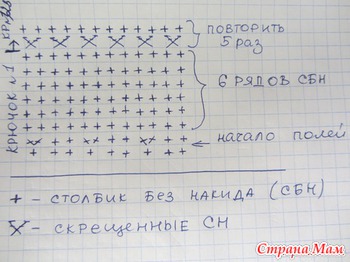 повторить
5 раз
6 рядов СБН
крючок №1
начало полей
+ - столбик без накида (СБН)
X - скрещенные СН
Страна Мам